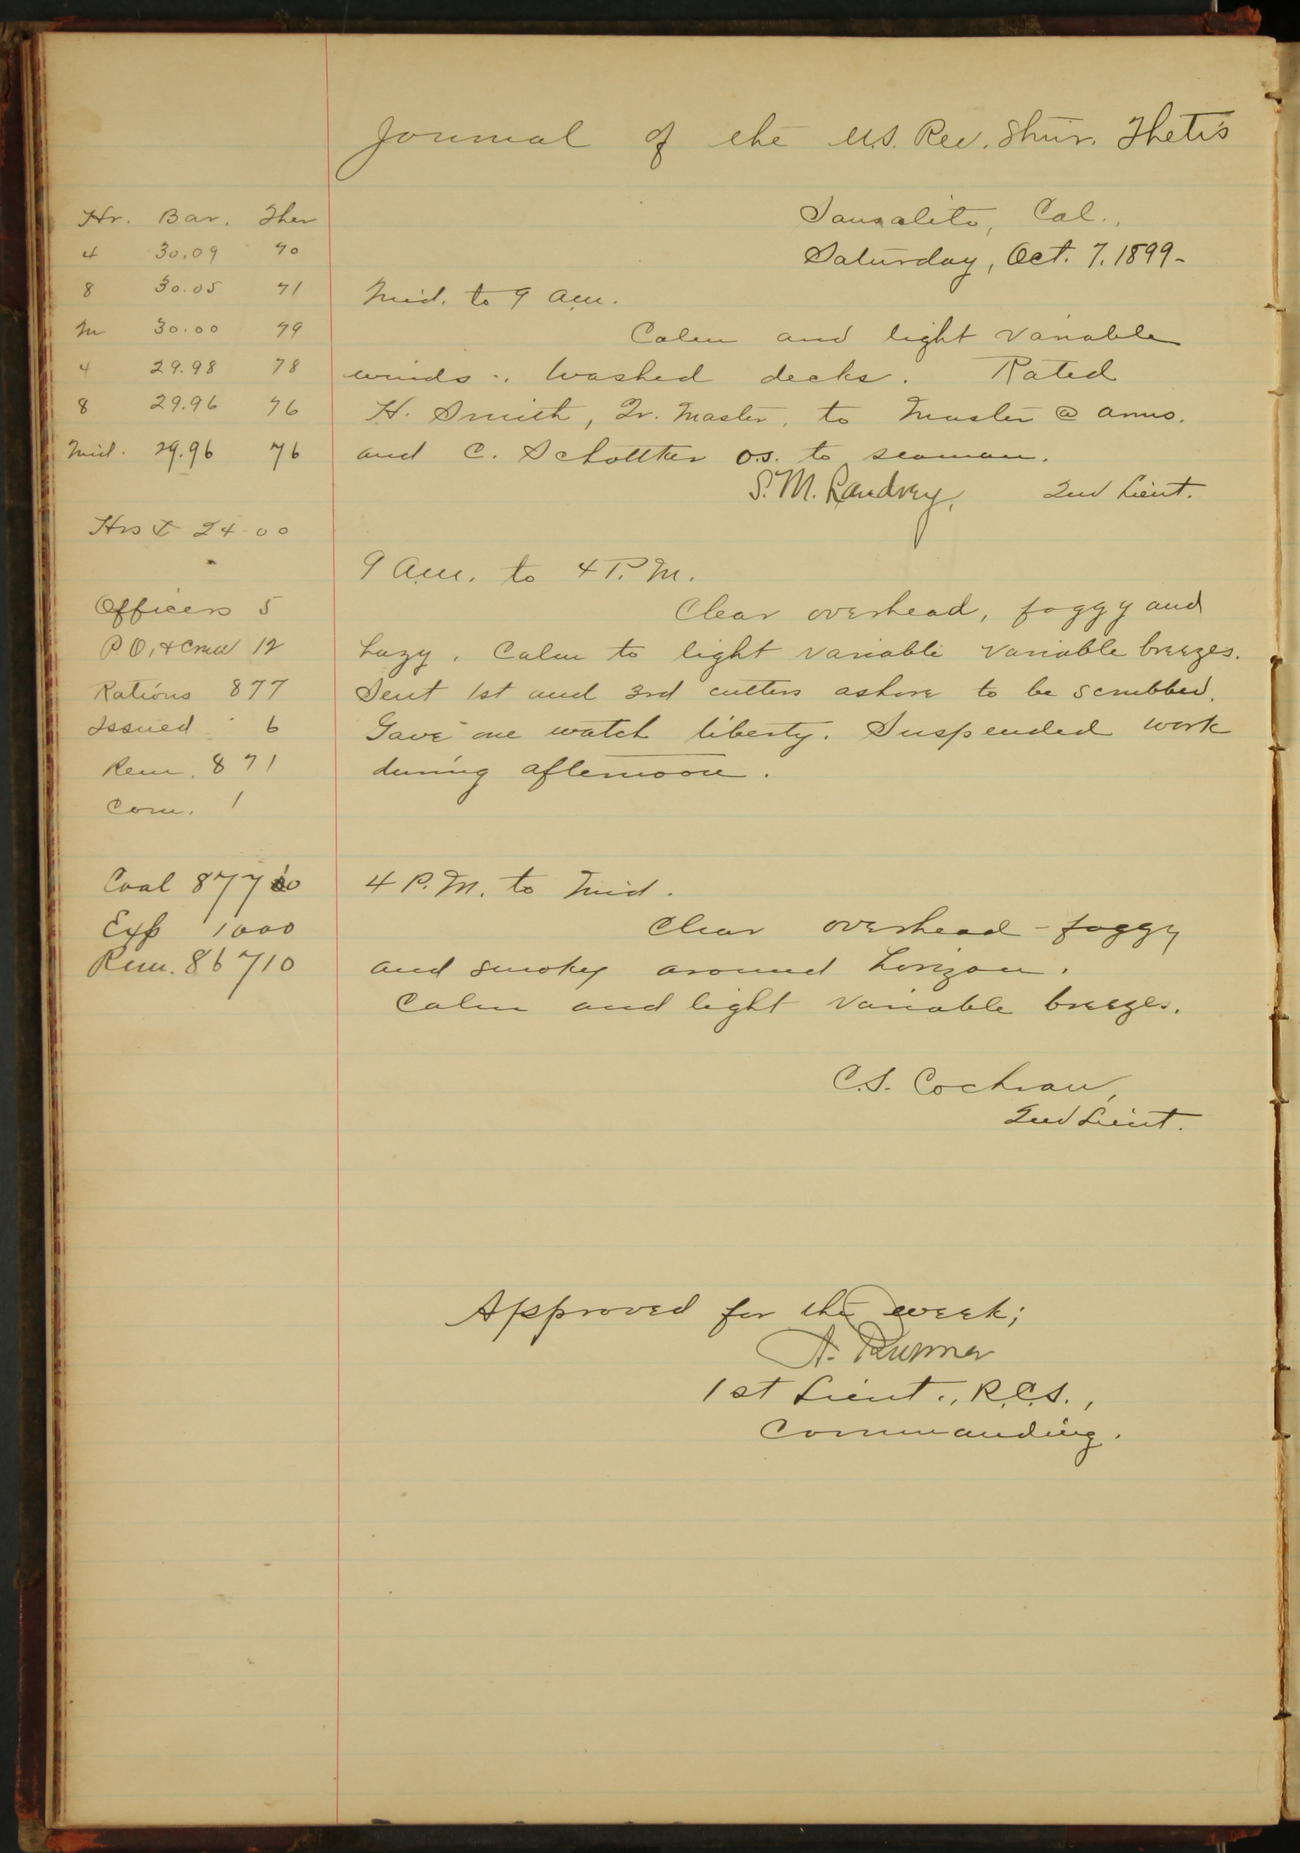 Journal of the U.S. Rev. Stmr. Thetis
Sausalito, Cal.,
Saturday, Oct. 7, 1899-
Hr. Bar. Ther
4 30.09 70
8 30.05 71
M 30.00 79
4 29.98 78
8 29.96 76
Mid. 29.96 76
Hrs & 24-00
Officers 5
P.O. & Crew 12
Rations 877
Issued 6
Rem. 871
Com. 1
Coal 87710
Exp 1000
Rem. 86710
Mid. to 9 a.m.
Calm and light variable
winds. Washed decks. Rated
H. Smith, Qr. Master, to Master @ arms.
and C. Schottker o.s. to seaman.
S. M. Landrey, 2nd Lieut.
9 a.m. to 4 P.M.
Clear overhead, foggy and
hazy. Calm to light variable variable breezes.
Sent 1st and 3rd cutters ashore to be scrubbed.
Gave one watch liberty. Suspended work
during afternoon.
4 P.M. to Mid.
Clear overhead - foggy
and smoky around horizon.
Calm and light variable breezes.
C. S. Cochran,
2nd Lieut.
Approved for the week;
1st Lieut., R.C.S.,
Commanding.